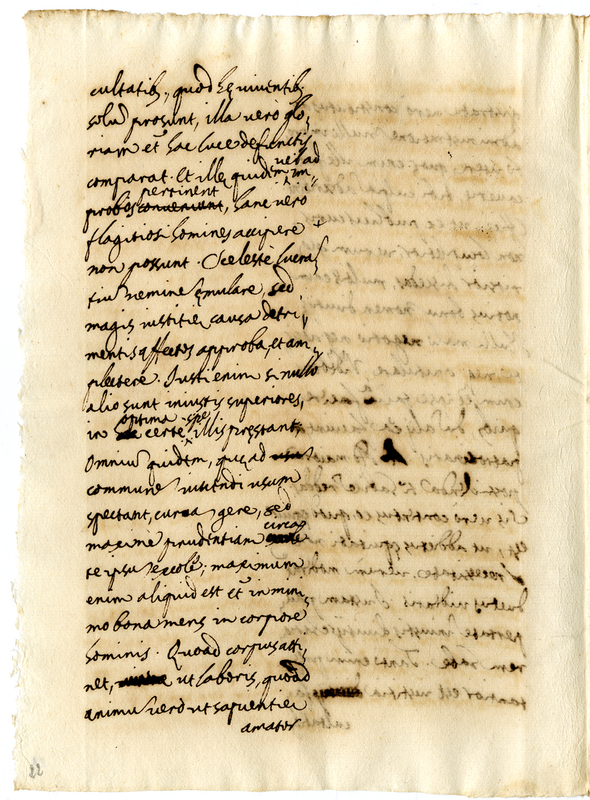 cultatib., quod hę viventib.
solũ prosunt, illa verò glo,
riam et hac luce defunctis
comparat. Et ille quidem vel ad im,
probos pertinent, hanc vero
flagitiosi homines accipere
non possunt. Scelestè lucra,
tiũ neminẽ ęmulare, sed
magis iustitię causa detri,
mentis affectos approba, et am,
plectere. Justi enim si nullo
alio sunt iniustis superiores,
in optima spe certe illis pręstant.
Omniũ quidem, quę ad
communẽ vivendi usum
spectant, curã gere, sed
maximè prudentiam circa
te ipsũ excole; maximum
enim aliquid est et in mini,
mo bona mens in corpore
hominis. Quoad corpus atti,
net, ut laboris, quoad
animũ verò ut sapientię
amator
22